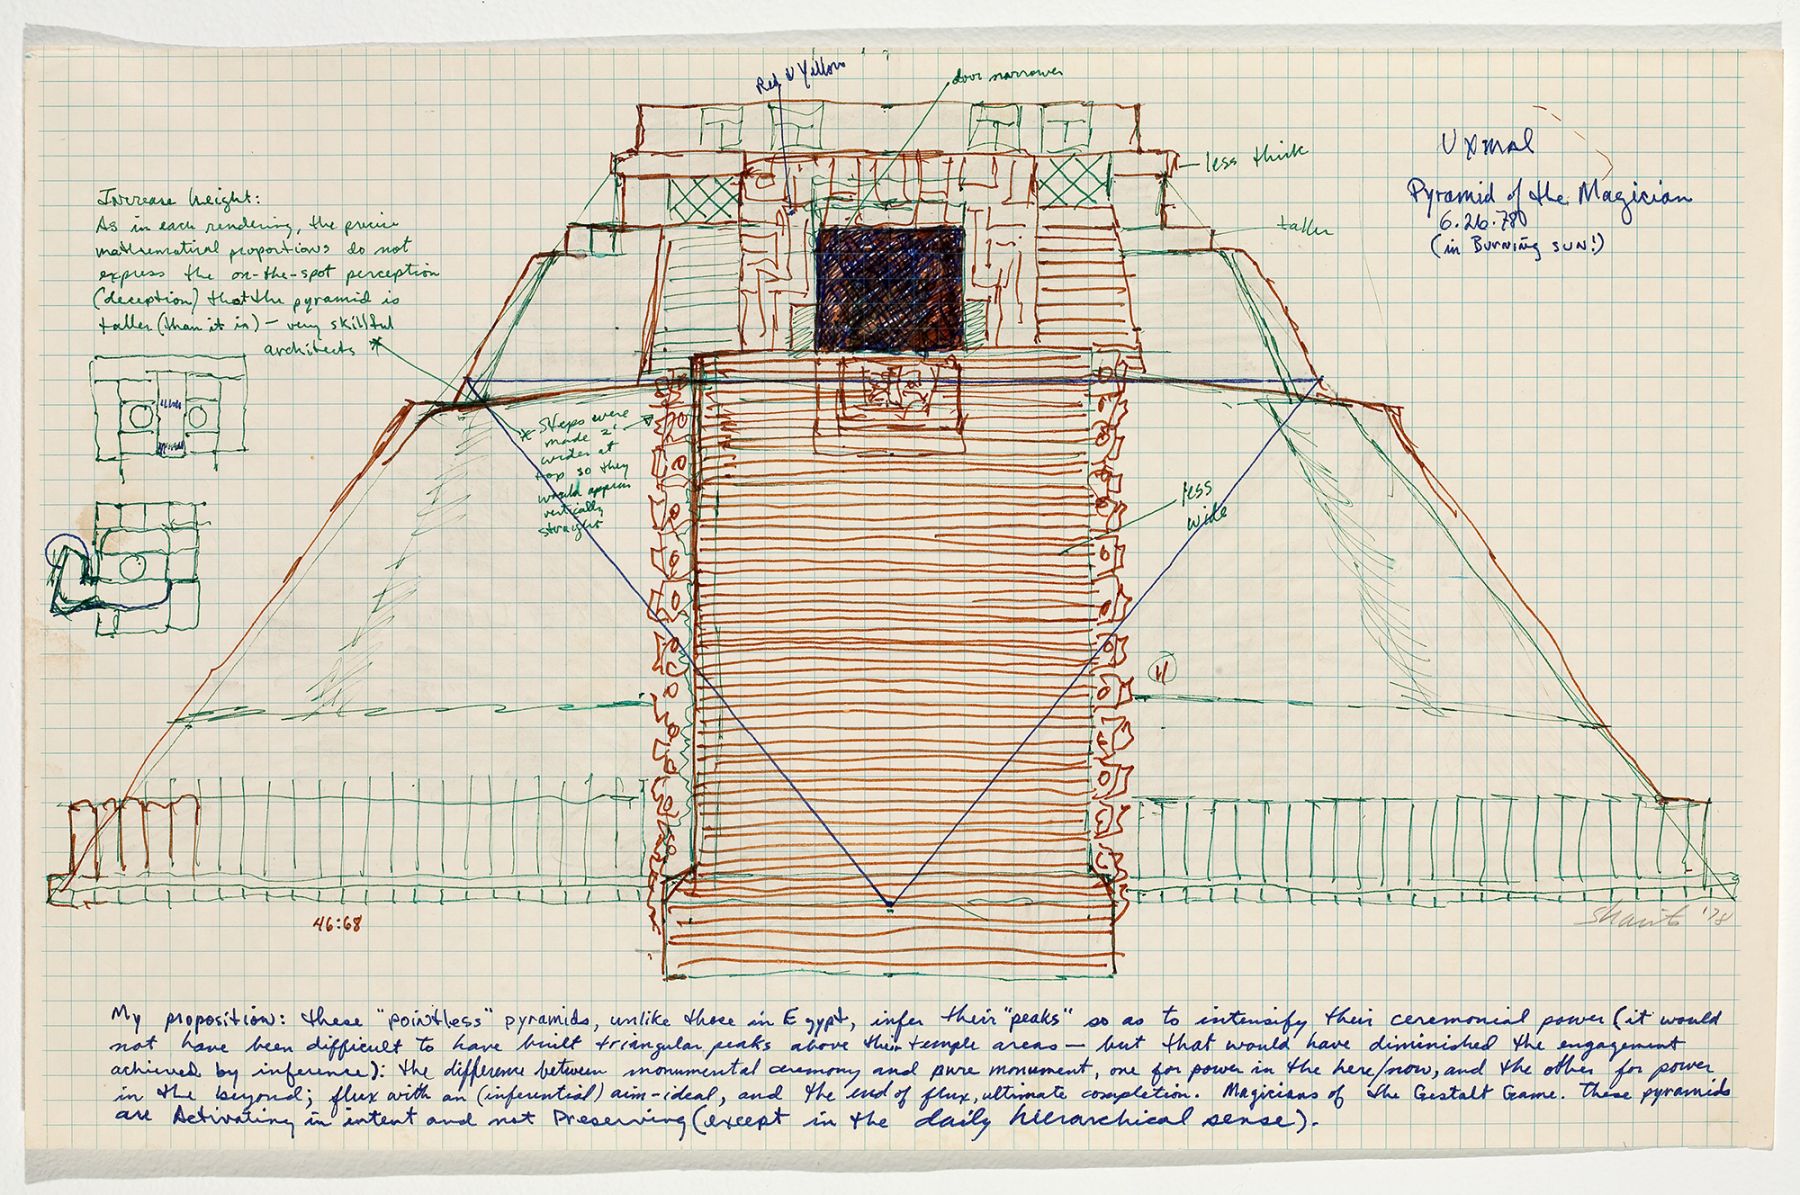 Red & Yellow
door narrower
Uxmal
Pyramid of the Magician
6.26.78
(in Burning SUN!)
less thick
taller
Increase height:
As in each rendering, the precise
mathematical proportions do not
express the on-the-spot perception
(deception) that the pyramid is
taller (than it is) — very skillful
architects *
* Steps were
made 2'
wider at
top so they
would appear
vertically
straight
less
wide
46:68
Shawits '78
My proposition: these "pointless" pyramids, unlike those in Egypt, infer their "peaks" so as to intensify their ceremonial power (it would
not have been difficult to have built triangular peaks above their temple areas — but that would have diminished the engagement
achieved by inference): the difference between monumental ceremony and pure monument, one for power in the here/now, and the other for power
in the beyond; flux with an (inferential) aim-ideal, and the end of flux, ultimate completion. Magicians of the Gestalt Game. These pyramids
are Activating in intent and not Preserving (except in the daily hierarchical sense).